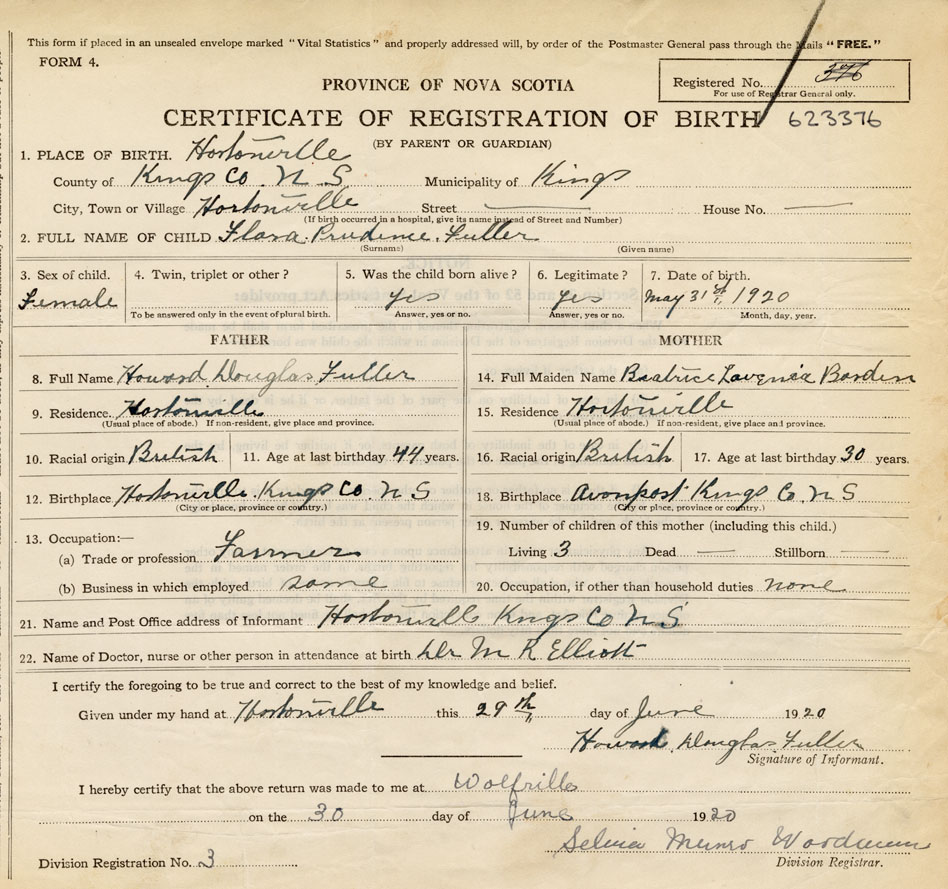 This form if placed in an unsealed envelope marked "Vital Statistics" and properly addressed will, by order of the Postmaster General pass through the Mails "FREE."
FORM 4.
Registered No. 376
For use of Registrar General only.
PROVINCE OF NOVA SCOTIA
CERTIFICATE OF REGISTRATION OF BIRTH 623376
(BY PARENT OR GUARDIAN)
1. PLACE OF BIRTH. Hortonville
County of Kings Co. N. S Municipality of Kings
City, Town or Village Hortonville Street — House No. —
(If birth occurred in a hospital, give its name instead of Street and Number)
2. FULL NAME OF CHILD Flora Prudence Fuller
(Surname) (Given name)
3. Sex of child. 4. Twin, triplet or other? 5. Was the child born alive? 6. Legitimate? 7. Date of birth.
Female yes yes May 31st, 1920
To be answered only in the event of plural birth. Answer, yes or no. Answer, yes or no. Month, day, year.
FATHER MOTHER
8. Full Name Howard Douglas Fuller 14. Full Maiden Name Beatrice Lavenia Borden
9. Residence. Hortonville 15. Residence Hortonville
(Usual place of abode.) If non-resident, give place and province. (Usual place of abode.) If non-resident, give place and province.
10. Racial origin British 11. Age at last birthday 44 years. 16. Racial origin British 17. Age at last birthday 30 years.
12. Birthplace Hortonville. Kings Co. N S 18. Birthplace Avonport Kings Co. N S
(City or place, province or country.) (City or place, province or country.)
13. Occupation:— 19. Number of children of this mother (including this child.)
(a) Trade or profession Farmer Living 3 Dead — Stillborn —
(b) Business in which employed same 20. Occupation, if other than household duties none
21. Name and Post Office address of Informant Hortonville Kings Co N S
22. Name of Doctor, nurse or other person in attendance at birth Dr M R Elliott
I certify the foregoing to be true and correct to the best of my knowledge and belief.
Given under my hand at Hortonville this 29th day of June 1920
Howard Douglas Fuller
Signature of Informant.
I hereby certify that the above return was made to me at Wolfville
on the 30 day of June 1920
Selina Munro
Division Registration No. 3 Division Registrar.